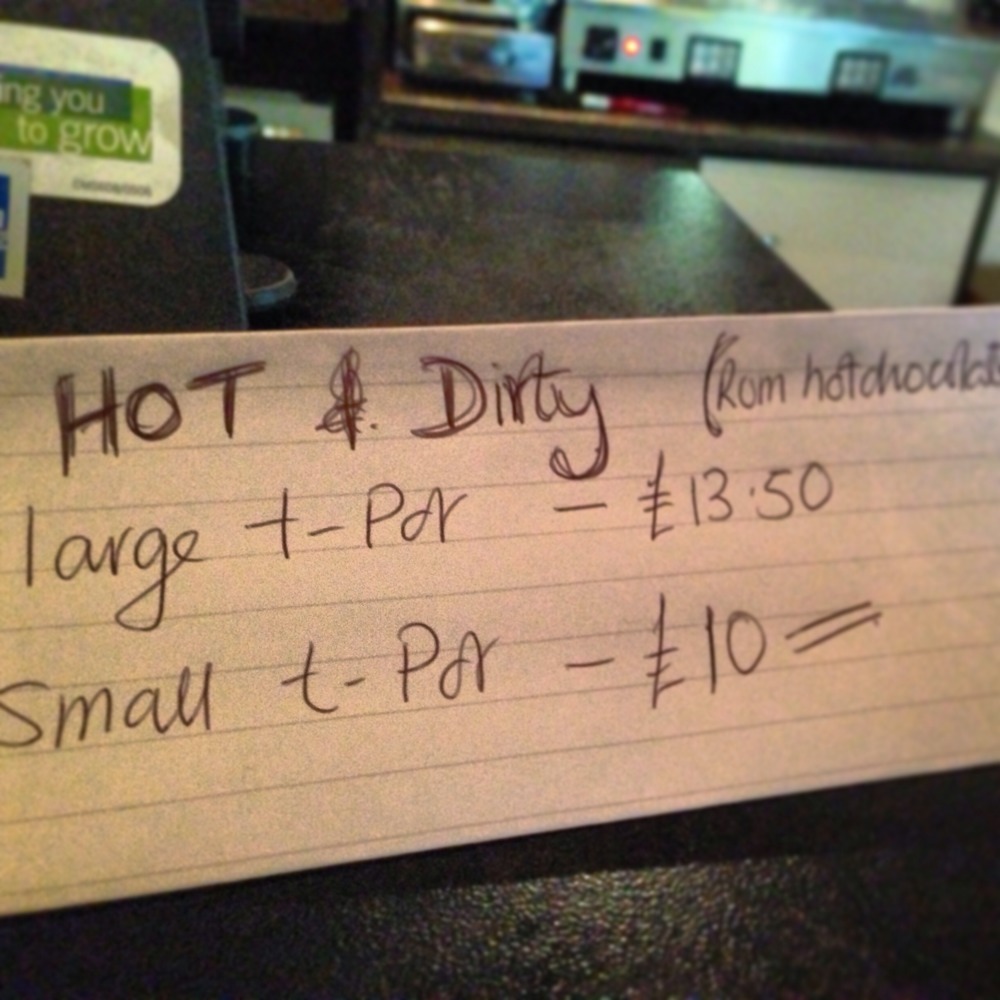 ing you
to grow
HOT & Dirty (Rum hotchocolat
large t-Pot - £13.50
Small t-Pot - £10 =